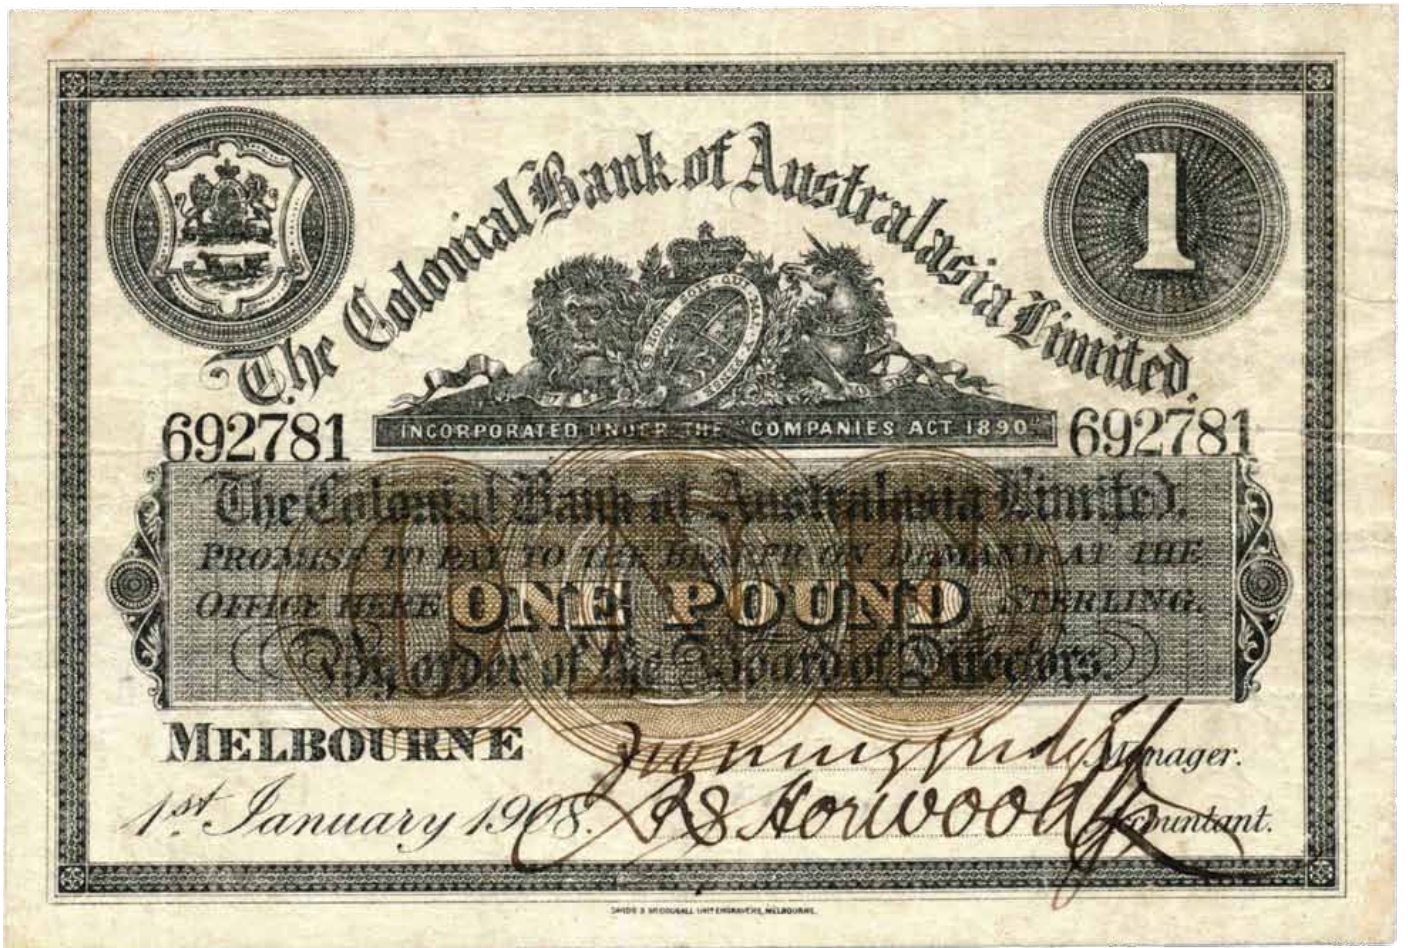 The Colonial Bank of Australasia Limited.
1
HONI SOIT QUI MAL Y PENSE
692781
INCORPORATED UNDER THE "COMPANIES ACT 1890"
692781
The Colonial Bank of Australasia Limited.
PROMISE TO PAY TO THE BEARER ON DEMAND AT THE
OFFICE HERE ONE POUND STERLING.
By order of the Board of Directors.
ONE
MELBOURNE
Manager.
1st January 1908.
R S Horwood
Accountant.
SANDS & MCDOUGALL LIMTD ENGRAVERS, MELBOURNE.